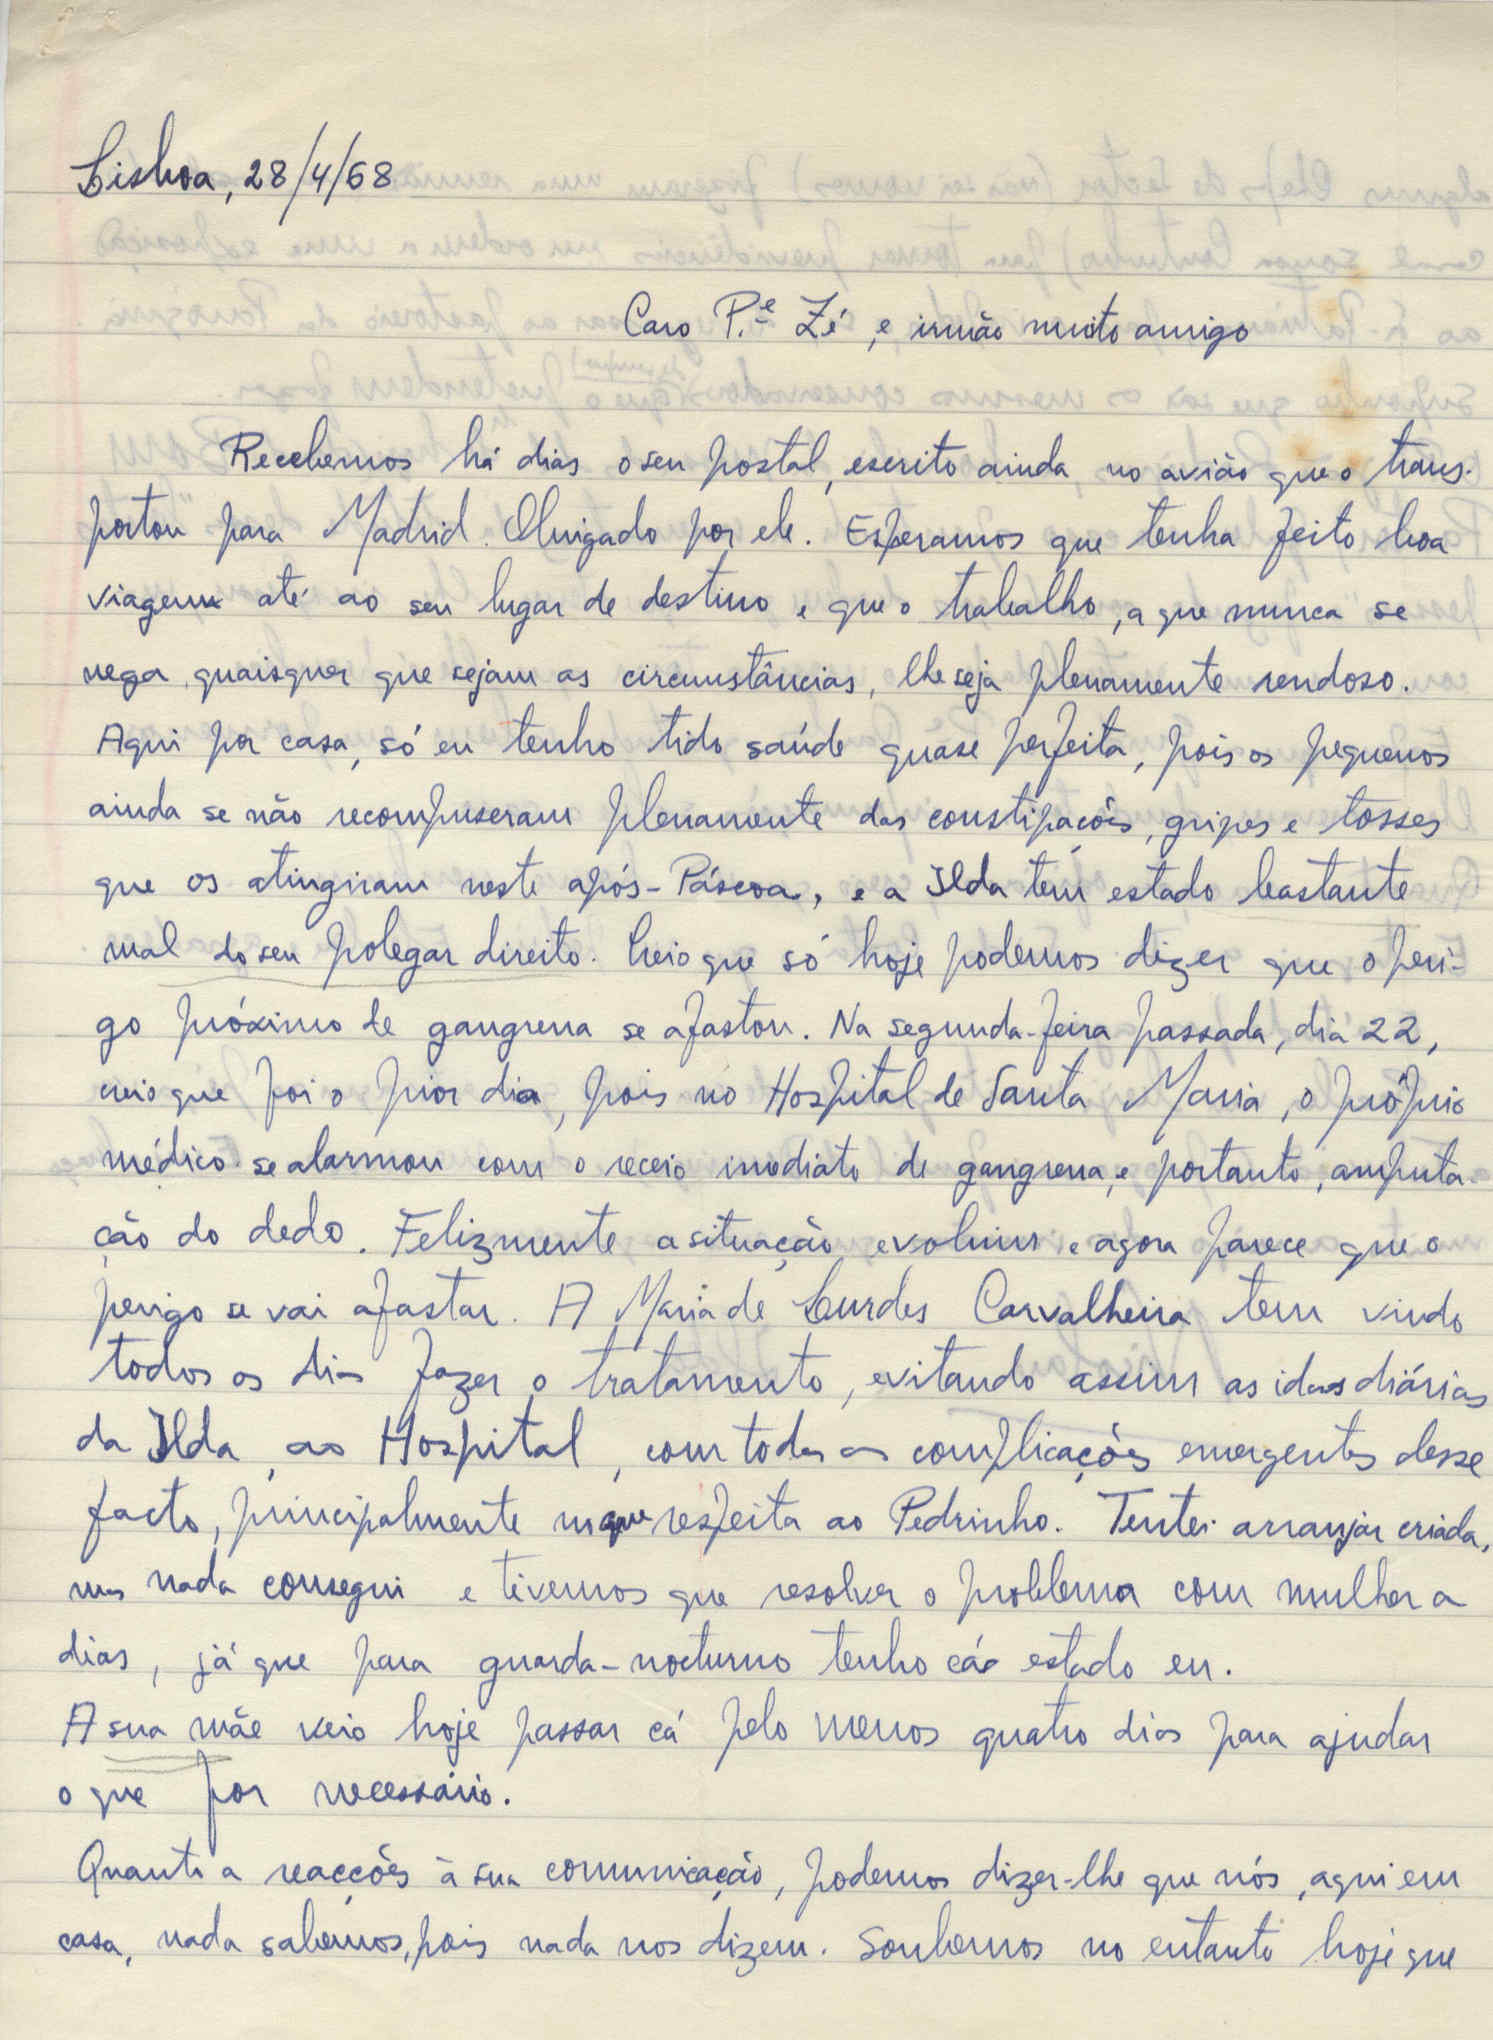 Lisboa, 28/4/68
Caro P.e Zé, e irmão muito amigo
Recebemos há dias o seu postal, escrito ainda no avião que o trans-
portou para Madrid. Obrigado por ele. Esperamos que tenha feito boa
viagem até ao seu lugar de destino e que o trabalho, a que nunca se
nega, quaisquer que sejam as circunstâncias, lhe seja plenamente rendoso.
Aqui por casa, só eu tenho tido saúde quase perfeita, pois os pequenos
ainda se não recompuseram plenamente das constipações, gripes e tosses
que os atingiram neste após-Páscoa, e a Ilda tem estado bastante
mal do seu polegar direito. Creio que só hoje podemos dizer que o peri-
go próximo de gangrena se afastou. Na segunda-feira passada, dia 22,
creio que foi o pior dia, pois no Hospital de Santa Maria, o próprio
médico se alarmou com o receio imediato de gangrena, e portanto, amputa-
ção do dedo. Felizmente a situação evoluiu e agora parece que o
perigo se vai afastar. A Maria de Lurdes Carvalheira tem vindo
todos os dias fazer o tratamento, evitando assim as idas diárias
da Ilda, ao Hospital, com todas as complicações emergentes desse
facto, principalmente no que respeita ao Pedrinho. Tentei arranjar criada,
mas nada consegui e tivemos que resolver o problema com mulher a
dias, já que para guarda-nocturno tenho cá estado eu.
A sua mãe veio hoje passar cá pelo menos quatro dias para ajudar
o que for necessário.
Quanto a reacções à sua comunicação, podemos dizer-lhe que nós, aqui em
casa, nada sabemos, pois nada nos dizem. Soubemos no entanto hoje que